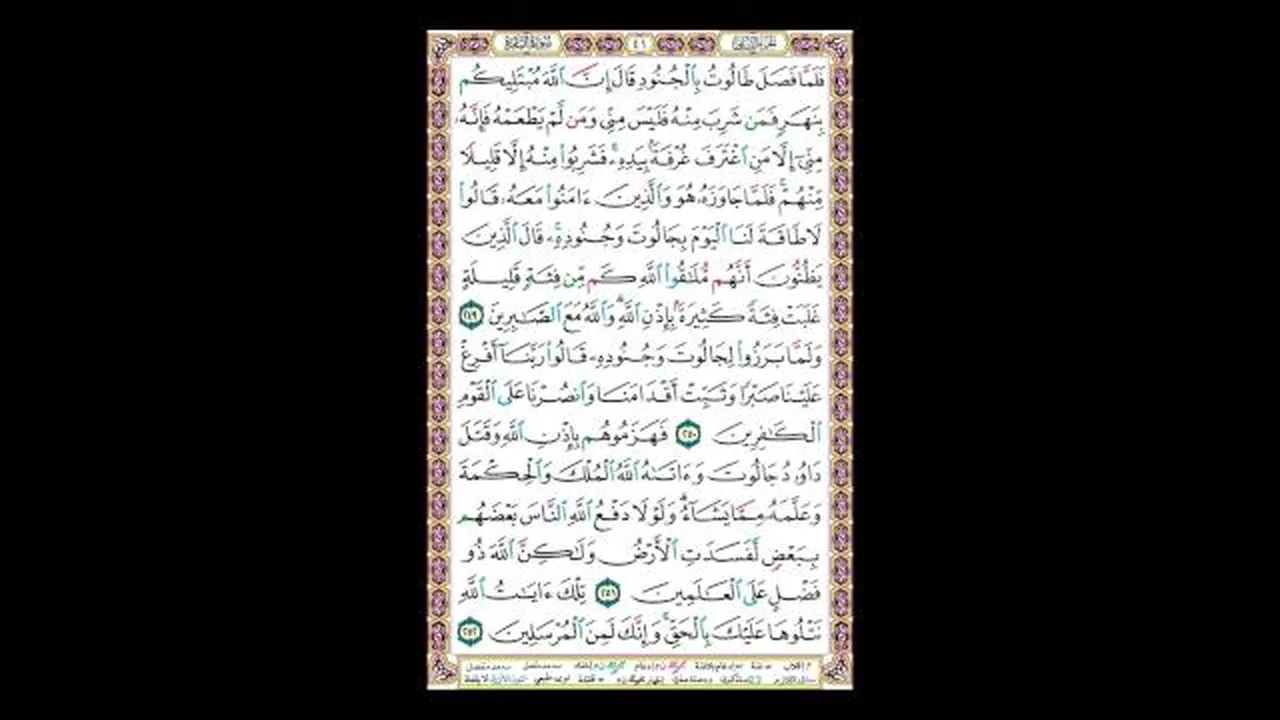 الجزء الثاني ٤١ سورة البقرة
فَلَمَّا فَصَلَ طَالُوتُ بِٱلْجُنُودِ قَالَ إِنَّ ٱللَّهَ مُبْتَلِيكُم
بِنَهَرٍ فَمَن شَرِبَ مِنْهُ فَلَيْسَ مِنِّى وَمَن لَّمْ يَطْعَمْهُ فَإِنَّهُۥ
مِنِّىٓ إِلَّا مَنِ ٱغْتَرَفَ غُرْفَةًۢ بِيَدِهِۦۚ فَشَرِبُوا۟ مِنْهُ إِلَّا قَلِيلًا
مِّنْهُمْۚ فَلَمَّا جَاوَزَهُۥ هُوَ وَٱلَّذِينَ ءَامَنُوا۟ مَعَهُۥ قَالُوا۟
لَا طَاقَةَ لَنَا ٱلْيَوْمَ بِجَالُوتَ وَجُنُودِهِۦۚ قَالَ ٱلَّذِينَ
يَظُنُّونَ أَنَّهُم مُّلَٰقُوا۟ ٱللَّهِ كَم مِّن فِئَةٍ قَلِيلَةٍ
غَلَبَتْ فِئَةً كَثِيرَةًۢ بِإِذْنِ ٱللَّهِۗ وَٱللَّهُ مَعَ ٱلصَّٰبِرِينَ ٢٤٩
وَلَمَّا بَرَزُوا۟ لِجَالُوتَ وَجُنُودِهِۦ قَالُوا۟ رَبَّنَآ أَفْرِغْ
عَلَيْنَا صَبْرًا وَثَبِّتْ أَقْدَامَنَا وَٱنصُرْنَا عَلَى ٱلْقَوْمِ
ٱلْكَٰفِرِينَ ٢٥٠ فَهَزَمُوهُم بِإِذْنِ ٱللَّهِ وَقَتَلَ
دَاوُۥدُ جَالُوتَ وَءَاتَىٰهُ ٱللَّهُ ٱلْمُلْكَ وَٱلْحِكْمَةَ
وَعَلَّمَهُۥ مِمَّا يَشَآءُۗ وَلَوْلَا دَفْعُ ٱللَّهِ ٱلنَّاسَ بَعْضَهُم
بِبَعْضٍ لَّفَسَدَتِ ٱلْأَرْضُ وَلَٰكِنَّ ٱللَّهَ ذُو
فَضْلٍ عَلَى ٱلْعَٰلَمِينَ ٢٥١ تِلْكَ ءَايَٰتُ ٱللَّهِ
نَتْلُوهَا عَلَيْكَ بِٱلْحَقِّۚ وَإِنَّكَ لَمِنَ ٱلْمُرْسَلِينَ ٢٥٢